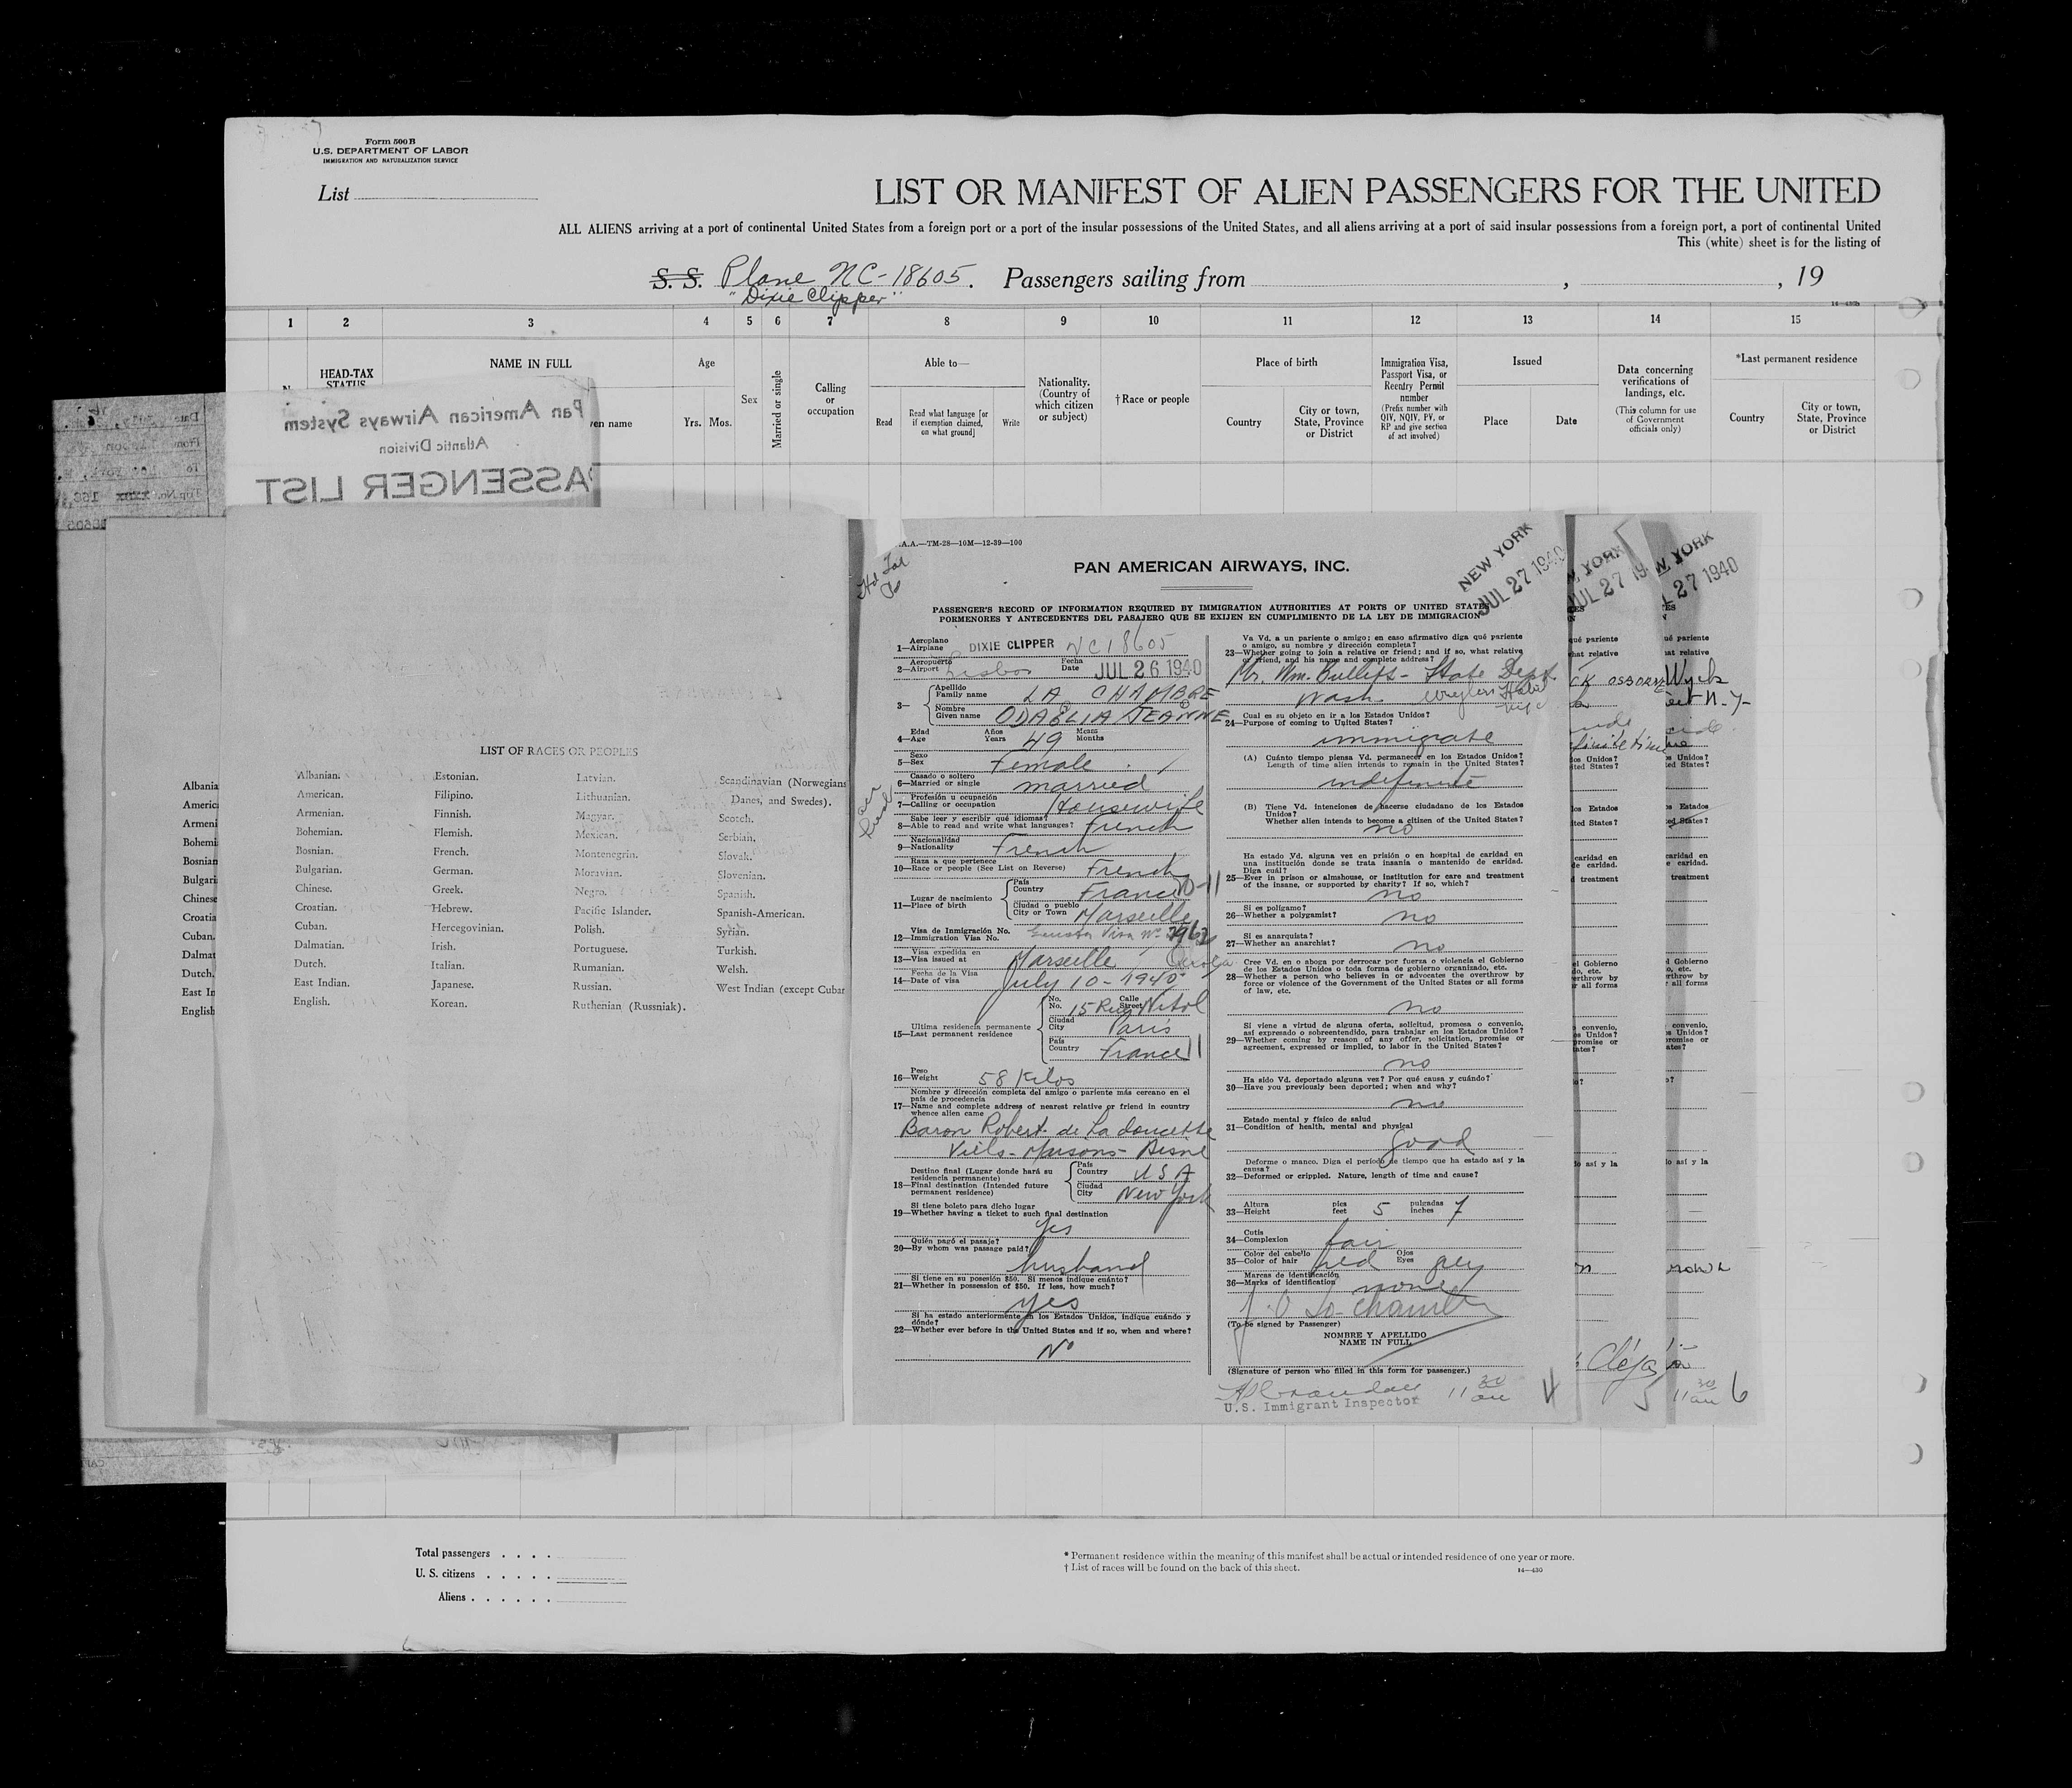 Form 500 B
U.S. DEPARTMENT OF LABOR
IMMIGRATION AND NATURALIZATION SERVICE
List
LIST OR MANIFEST OF ALIEN PASSENGERS FOR THE UNITED
ALL ALIENS arriving at a port of continental United States from a foreign port or a port of the insular possessions of the United States, and all aliens arriving at a port of said insular possessions from a foreign port, a port of continental United
This (white) sheet is for the listing of
S. S. Plane NC-18605. Passengers sailing from , , 19
"Dixie Clipper"
1 2 3 4 5 6 7 8 9 10 11 12 13 14 15
HEAD-TAX STATUS
NAME IN FULL
ven name
Age
Yrs. Mos.
Sex
Married or single
Calling or occupation
Able to—
Read
Read what language [or if exemption claimed, on what ground]
Write
Nationality. (Country of which citizen or subject)
†Race or people
Place of birth
Country
City or town, State, Province or District
Immigration Visa, Passport Visa, or Reentry Permit number
(Prefix number with QIV, NQIV, PV, or RP and give section of act involved)
Issued
Place
Date
Data concerning verifications of landings, etc.
(This column for use of Government officials only)
*Last permanent residence
Country
City or town, State, Province or District
Pan American Airways System
Atlantic Division
PASSENGER LIST
LIST OF RACES OR PEOPLES
Albanian. Estonian. Latvian. Scandinavian (Norwegians
American. Filipino. Lithuanian. Danes, and Swedes).
Armenian. Finnish. Magyar. Scotch.
Bohemian. Flemish. Mexican. Serbian.
Bosnian. French. Montenegrin. Slovak.
Bulgarian. German. Moravian. Slovenian.
Chinese. Greek. Negro. Spanish.
Croatian. Hebrew. Pacific Islander. Spanish-American.
Cuban. Hercegovinian. Polish. Syrian.
Dalmatian. Irish. Portuguese. Turkish.
Dutch. Italian. Rumanian. Welsh.
East Indian. Japanese. Russian. West Indian (except Cuban
English. Korean. Ruthenian (Russniak).
A.A.—TM-28—10M—12-39—100
PAN AMERICAN AIRWAYS, INC.
NEW YORK
JUL 27 1940
PASSENGER'S RECORD OF INFORMATION REQUIRED BY IMMIGRATION AUTHORITIES AT PORTS OF UNITED STATES
PORMENORES Y ANTECEDENTES DEL PASAJERO QUE SE EXIJEN EN CUMPLIMIENTO DE LA LEY DE IMMIGRACION
Aeroplano
1—Airplane DIXIE CLIPPER NC18605
Aeropuerto Fecha
2—Airport Lisbon Date JUL 26 1940
3— Apellido
Family name LA CHAMBRE
Nombre
Given name ODAELIA JEANNE
Edad Años Meses
4—Age Years 49 Months
Sexo
5—Sex Female
Casado o soltero
6—Married or single married
Profesión u ocupación
7—Calling or occupation Housewife
Sabe leer y escribir qué idiomas?
8—Able to read and write what languages? French
Nacionalidad
9—Nationality French
Raza a que pertenece
10—Race or people (See List on Reverse) French
Lugar de nacimiento
11—Place of birth
País
Country France
Ciudad o pueblo
City or Town Marseille
Visa de Inmigración No.
12—Immigration Visa No.
Visa expedida en
13—Visa issued at Marseille
Fecha de la Visa
14—Date of visa July 10-1940
Ultima residencia permanente
15—Last permanent residence
No. Calle
No. 15 Rue Street
Ciudad
City Paris
País
Country France
Peso
16—Weight 58 Kilos
Nombre y dirección completa del amigo o pariente más cercano en el país de procedencia
17—Name and complete address of nearest relative or friend in country whence alien came
Baron Robert de La doucette
Viels-Maisons-Aisne
Destino final (Lugar donde hará su residencia permanente)
18—Final destination (Intended future permanent residence)
País
Country U S A
Ciudad
City New York
Si tiene boleto para dicho lugar
19—Whether having a ticket to such final destination
yes
Quién pagó el pasaje?
20—By whom was passage paid?
husband
Si tiene en su posesión $50. Si menos indique cuánto?
21—Whether in possession of $50. If less, how much?
yes
Si ha estado anteriormente en los Estados Unidos, indique cuándo y dónde?
22—Whether ever before in the United States and if so, when and where?
No
Va Vd. a un pariente o amigo; en caso afirmativo diga qué pariente o amigo, su nombre y dirección completa?
23—Whether going to join a relative or friend; and if so, what relative or friend, and his name and complete address?
Mr. Wm. Bullitt - State Dept.
Wash.
Cual es su objeto en ir a los Estados Unidos?
24—Purpose of coming to United States?
immigrate
(A) Cuánto tiempo piensa Vd. permanecer en los Estados Unidos?
Length of time alien intends to remain in the United States?
indefinite
(B) Tiene Vd. intenciones de hacerse ciudadano de los Estados Unidos?
Whether alien intends to become a citizen of the United States?
no
Ha estado Vd. alguna vez en prisión o en hospital de caridad en una institución donde se trata insania o mantenido de caridad. Diga cuál?
25—Ever in prison or almshouse, or institution for care and treatment of the insane, or supported by charity? If so, which?
no
Si es polígamo?
26—Whether a polygamist? no
Si es anarquista?
27—Whether an anarchist? no
Cree Vd. en o aboga por derrocar por fuerza o violencia el Gobierno de los Estados Unidos o toda forma de gobierno organizado, etc.
28—Whether a person who believes in or advocates the overthrow by force or violence of the Government of the United States or all forms of law, etc.
no
Si viene a virtud de alguna oferta, solicitud, promesa o convenio, así expresado o sobreentendido, para trabajar en los Estados Unidos?
29—Whether coming by reason of any offer, solicitation, promise or agreement, expressed or implied, to labor in the United States?
no
Ha sido Vd. deportado alguna vez? Por qué causa y cuándo?
30—Have you previously been deported; when and why?
no
Estado mental y físico de salud
31—Condition of health, mental and physical
good
Deforme o manco. Diga el período de tiempo que ha estado así y la causa?
32—Deformed or crippled. Nature, length of time and cause?
Altura pies pulgadas
33—Height feet 5 inches 7
Cutis
34—Complexion fair
Color del cabello Ojos
35—Color of hair red Eyes grey
Marcas de identificación
36—Marks of identification none
J. O La Chambre
(To be signed by Passenger)
NOMBRE Y APELLIDO
NAME IN FULL
(Signature of person who filled in this form for passenger.)
U.S. Immigrant Inspector
11 30 am
Total passengers
U. S. citizens
Aliens
* Permanent residence within the meaning of this manifest shall be actual or intended residence of one year or more.
† List of races will be found on the back of this sheet.
14—430